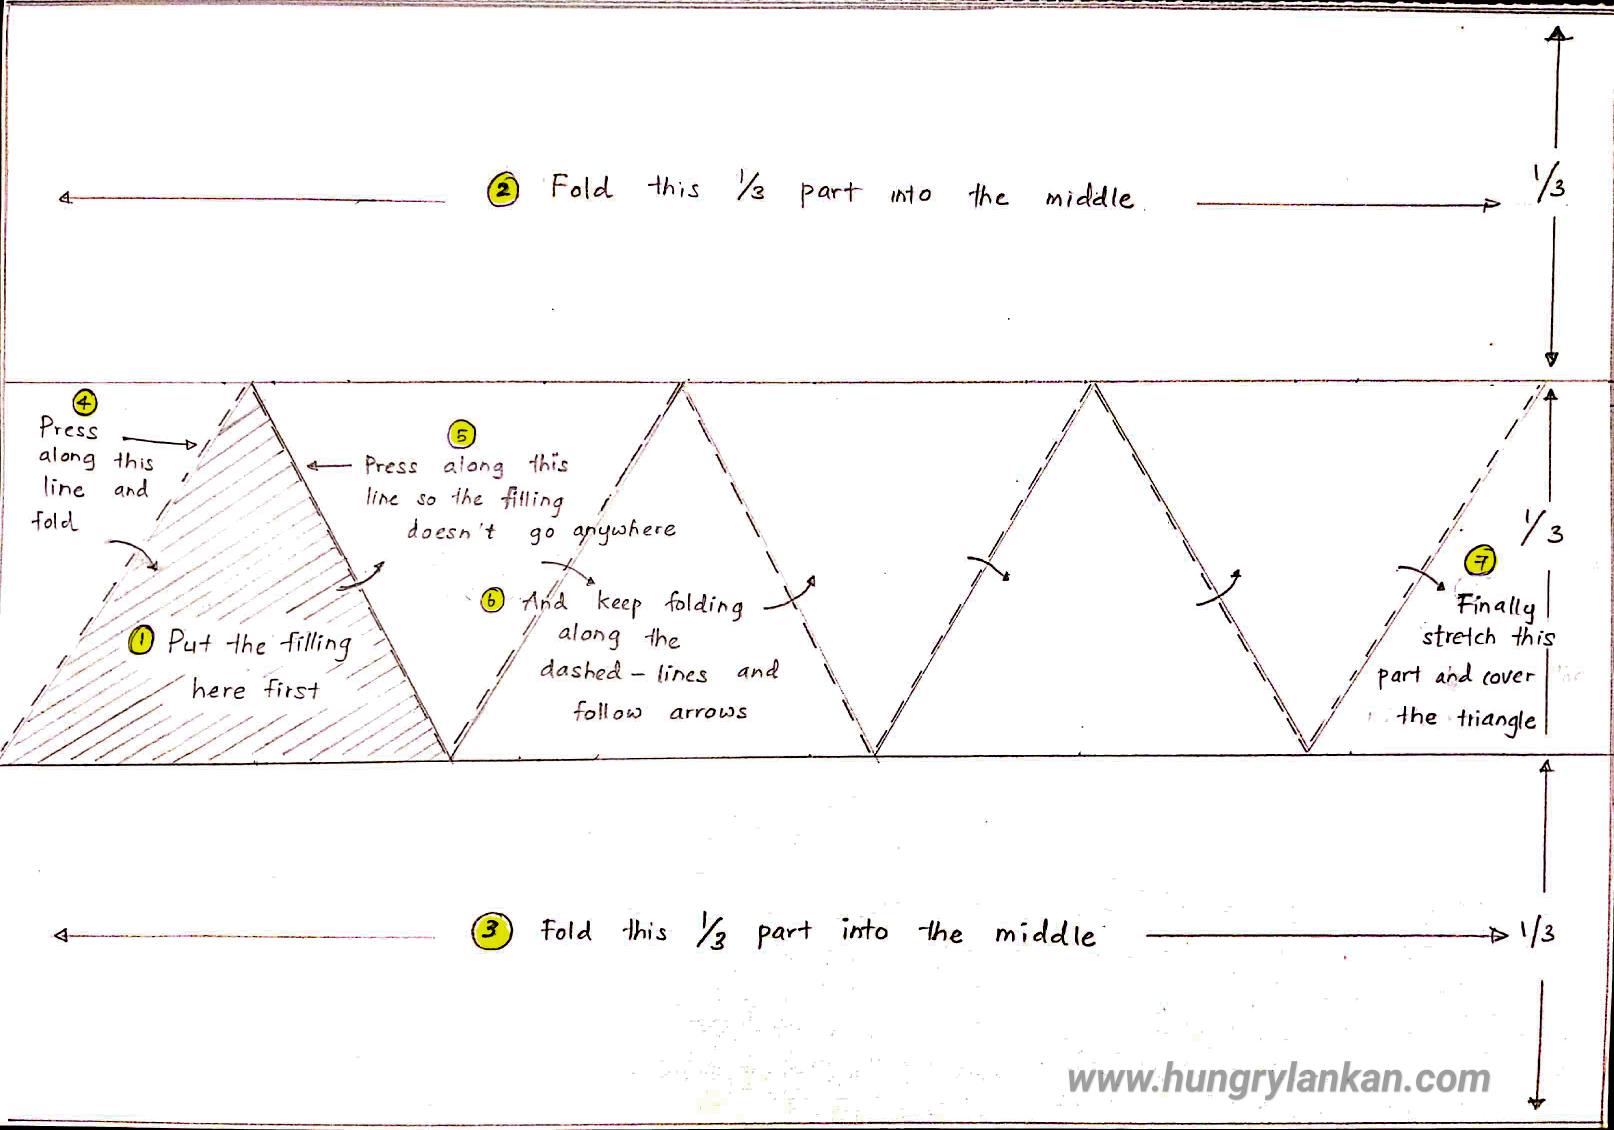 2 Fold this 1/3 part into the middle
1/3
4
Press
along this
line and
fold
5
Press along this
line so the filling
doesn't go anywhere
1/3
1 Put the filling
here first
6 And keep folding
along the
dashed - lines and
follow arrows
7
Finally
stretch this
part and cover
the triangle
3 Fold this 1/3 part into the middle
1/3
www.hungrylankan.com